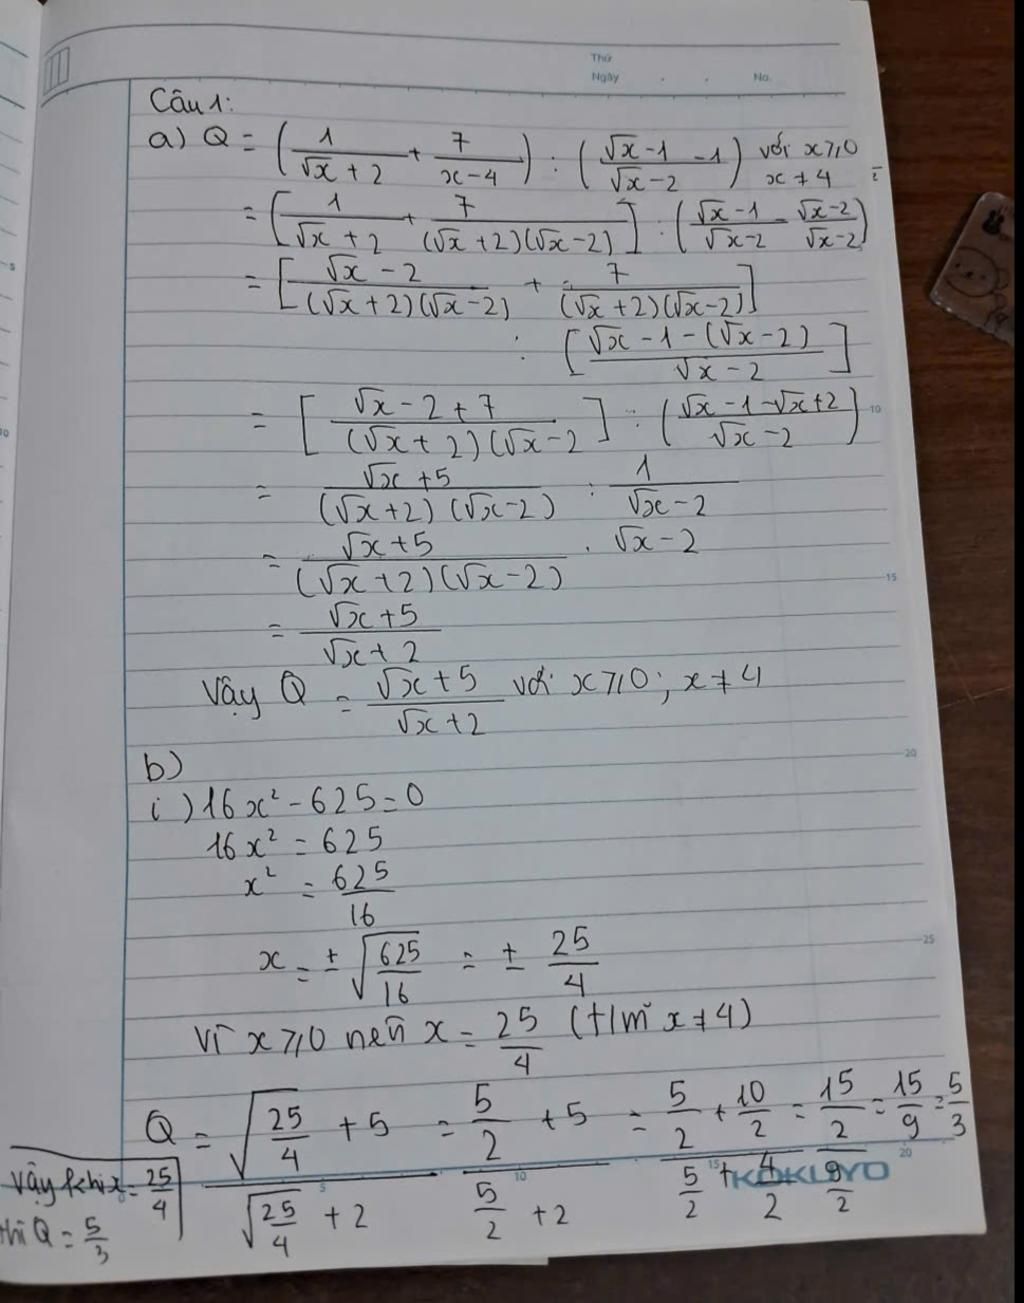 Thứ
Ngày . . No.
Câu 1:
a) Q = (1/(√x + 2) + 7/(x - 4)) : ((√x - 1)/(√x - 2) - 1) với x ≥ 0 x ≠ 4
= [1/(√x + 2) + 7/((√x + 2)(√x - 2))] : ((√x - 1)/(√x - 2) - (√x - 2)/(√x - 2))
= [(√x - 2)/((√x + 2)(√x - 2)) + 7/((√x + 2)(√x - 2))]
: [(√x - 1 - (√x - 2))/(√x - 2)]
= [(√x - 2 + 7)/((√x + 2)(√x - 2] : ((√x - 1 - √x + 2)/(√x - 2))
= (√x + 5)/((√x + 2)(√x - 2)) : 1/(√x - 2)
= (√x + 5)/((√x + 2)(√x - 2)) . √x - 2
= (√x + 5)/(√x + 2)
Vậy Q = (√x + 5)/(√x + 2) với x ≥ 0; x ≠ 4
b)
i) 16x² - 625 = 0
16x² = 625
x² = 625/16
x = ± √(625/16) = ± 25/4
Vì x ≥ 0 nên x = 25/4 (t/m x ≠ 4)
Q = (√(25/4) + 5)/(√(25/4) + 2) = (5/2 + 5)/(5/2 + 2) = (5/2 + 10/2)/(5/2 + 4/2) = (15/2)/(9/2) = 15/9 = 5/3
Vậy khi x = 25/4
thì Q = 5/3
KOKUYO